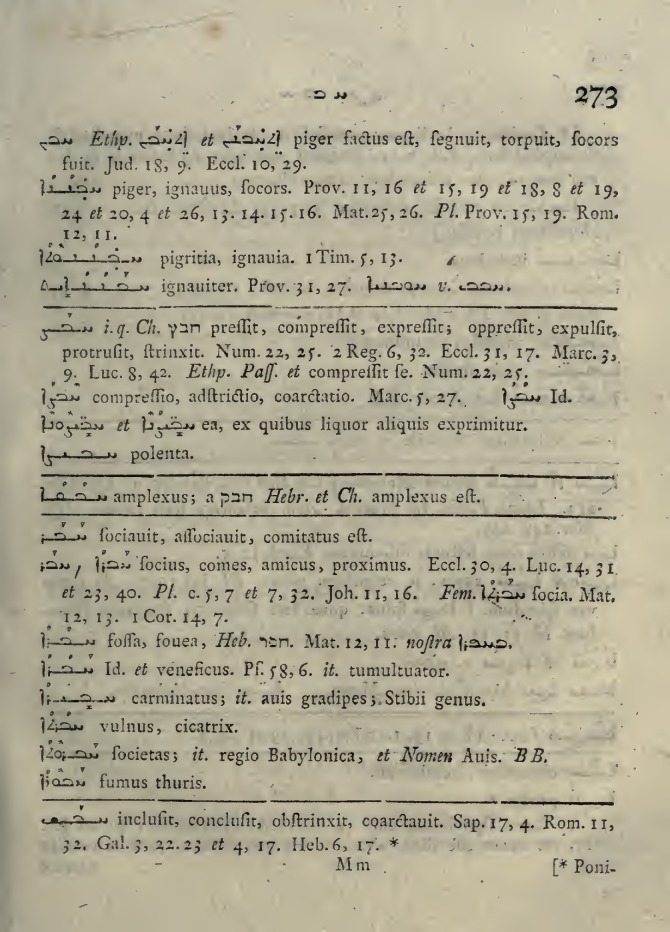 ܚܒ 273
ܚܒܢ Ethp. ܐܬܚܒܢ et ܐܬܚܒܢ piger factus est, segnuit, torpuit, socors
fuit. Jud. 18, 9. Eccl. 10, 29.
ܚܒܢܢܐ piger, ignauus, socors. Prov. 11, 16 et 15, 19 et 18, 8 et 19,
24 et 20, 4 et 26, 13. 14. 15. 16. Mat. 25, 26. Pl. Prov. 15, 19. Rom.
12, 11.
ܚܒܢܢܘܬܐ pigritia, ignauia. 1 Tim. 5, 13.
ܚܒܢܢܐܝܬ ignauiter. Prov. 31, 27. v.
ܚܒܨ i. q. Ch. חבץ pressit, compressit, expressit; oppressit, expulsit,
protrusit, strinxit. Num. 22, 25. 2 Reg. 6, 32. Eccl. 31, 17. Marc. 3,
9. Luc. 8, 42. Ethp. Pass. et compressit se. Num. 22, 25.
ܚܒܨܐ compressio, adstrictio, coarctatio. Marc. 5, 27. ܚܒܨܐ Id.
ܚܒܨܘܢܐ et ܚܒܨܢܐ ea, ex quibus liquor aliquis exprimitur.
ܚܒܝܨܐ polenta.
ܚܒܩܐ amplexus; a חבק Hebr. et Ch. amplexus est.
ܚܒܪ sociauit, associauit, comitatus est.
ܚܒܪ, ܚܒܪܐ socius, comes, amicus, proximus. Eccl. 30, 4. Luc. 14, 31
et 23, 40. Pl. c. 5, 7 et 7, 32. Joh. 11, 16. Fem. ܚܒܪܬܐ socia. Mat.
12, 13. 1 Cor. 14, 7.
ܚܒܪܐ fossa, fouea, Heb. חבר. Mat. 12, 11. nostra
ܚܒܪܐ Id. et veneficus. Ps. 58, 6. it. tumultuator.
ܚܒܝܪܐ carminatus; it. auis gradipes; Stibii genus.
ܚܒܪܬܐ vulnus, cicatrix.
ܚܒܪܘܬܐ societas; it. regio Babylonica, et Nomen Auis. BB.
ܚܒܘܪܐ fumus thuris.
ܚܒܫ inclusit, conclusit, obstrinxit, coarctauit. Sap. 17, 4. Rom. 11,
32. Gal. 3, 22. 23 et 4, 17. Heb. 6, 17. *
M m [* Poni-